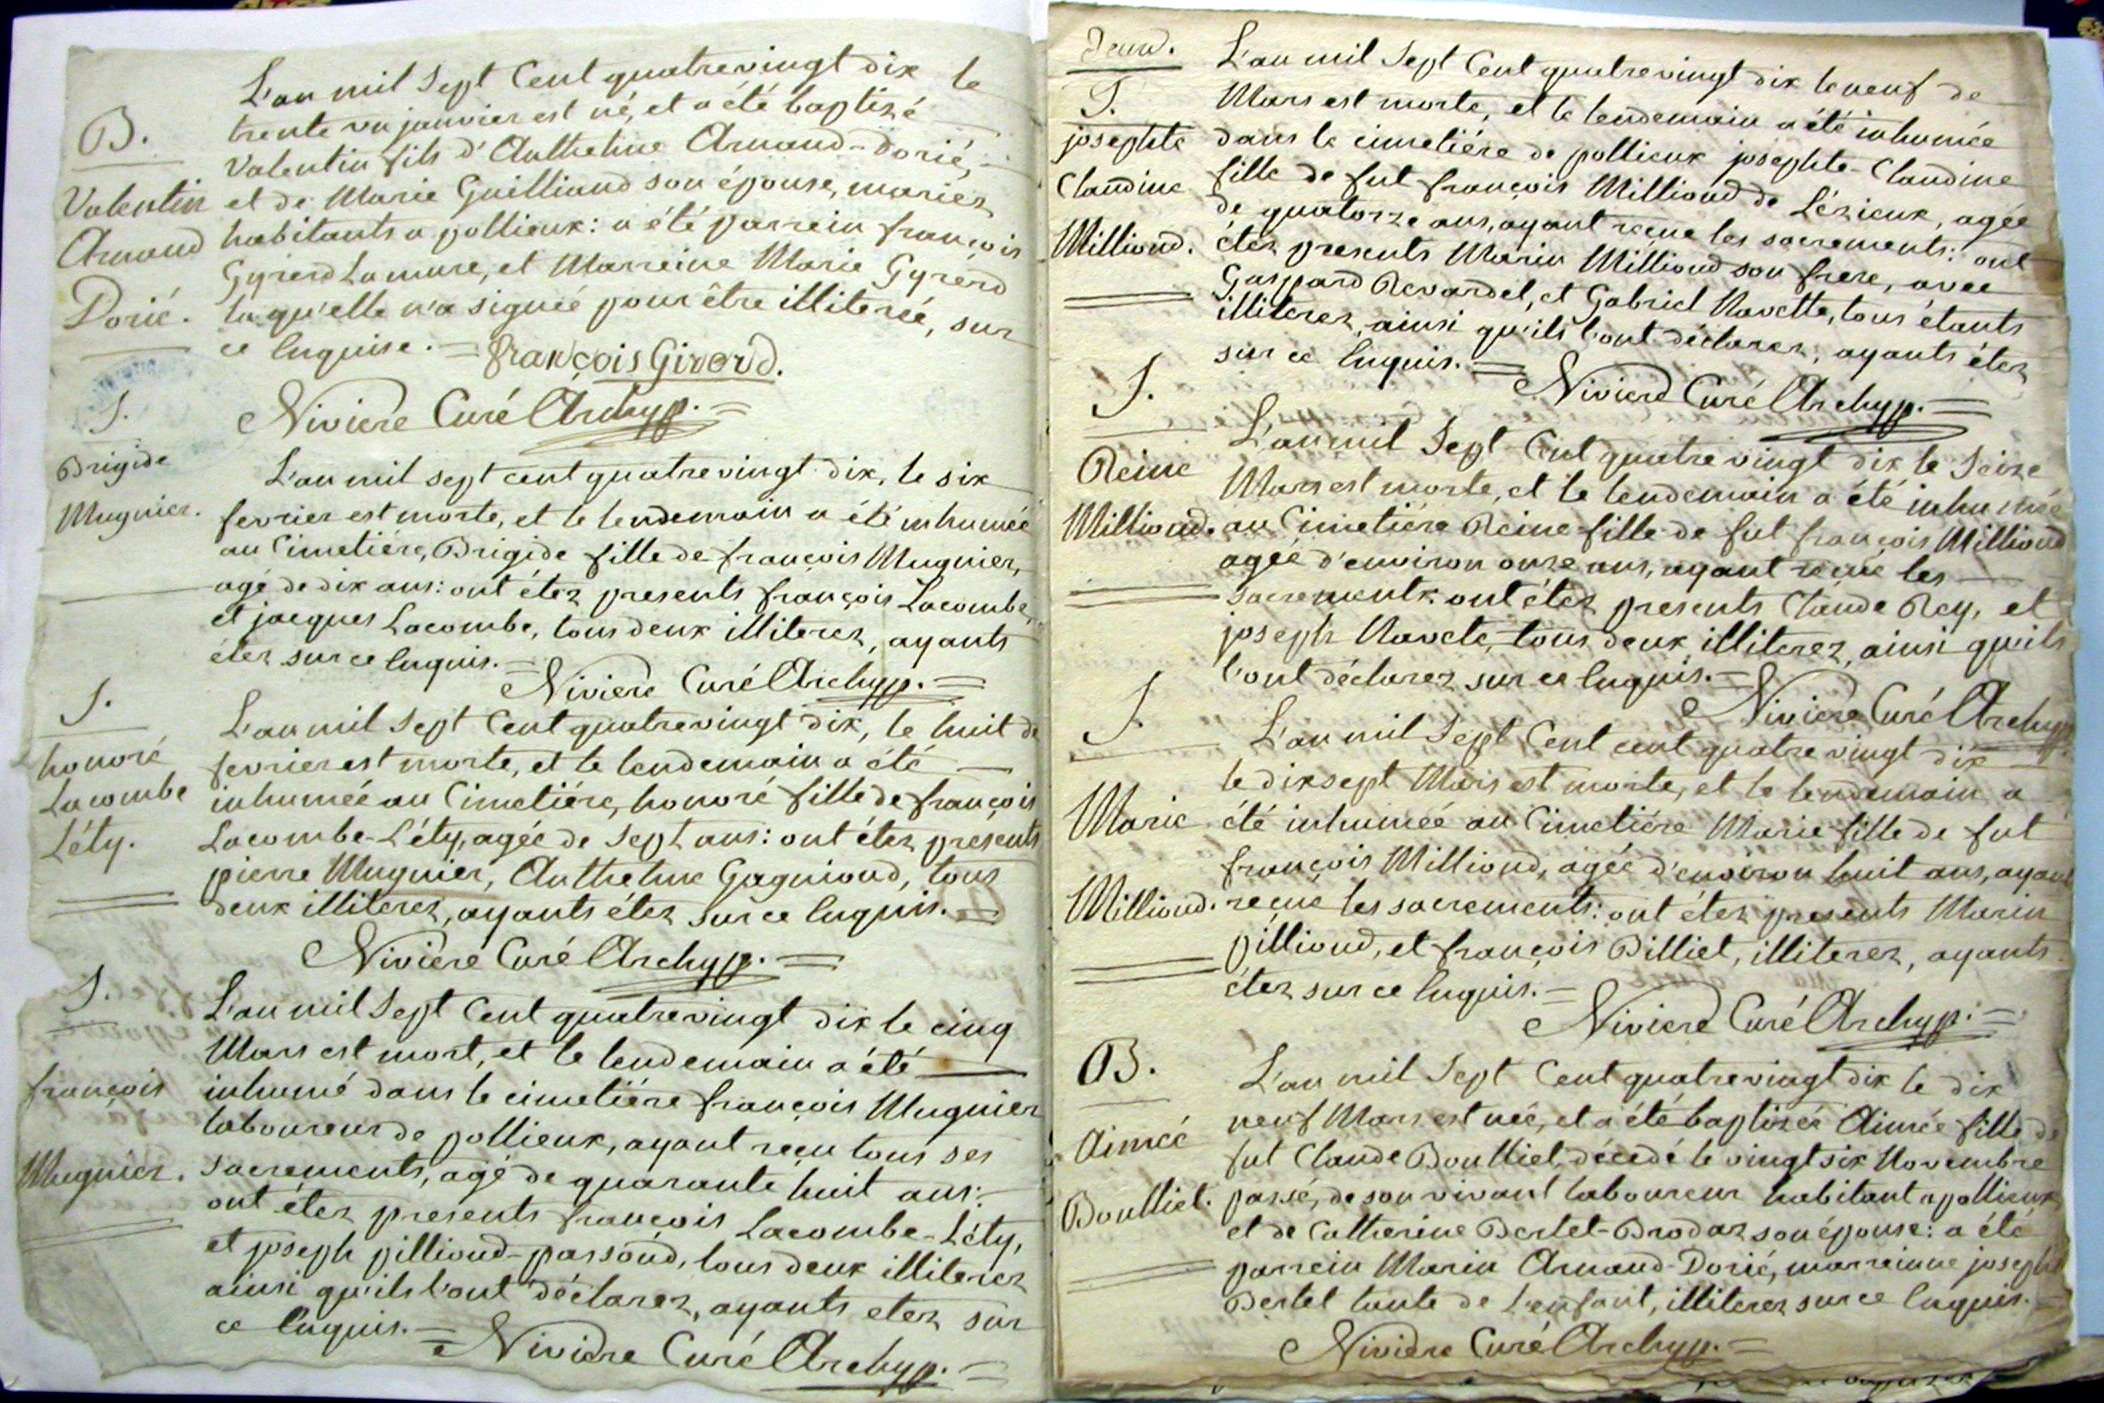 L'an mil Sept Cent quatrevingt dix le
trente un janvier est né, et a été baptizé
Valentin fils d'Anthelme Arnaud-Dorié,
et de Marie Guilliand son épouse, mariéz
habitants a pollieux: a été parrein françois
Gyrerd Lamure, et Marreine Marie Gyrérd
laqu'elle n'a signéé pour être illiteréé, sur
ce Enquise.
françois Giverd.
Nivière Curé Archyp.
B.
Valentin
Arnaud
Dorié.
S.
Brigide
Mugnier.
L'an mil sept cent quatrevingt dix, le six
fevrier est morte, et le lendemain a été inhumée
au Cimetiére, Brigide fille de françois Mugnier,
agé de dix ans: ont étez presents françois Lacombe,
et jacques Lacombe, tous deux illiterez, ayants
étez sur ce Enquis.
Nivière Curé Archyp.
S.
honoré
Lacombe
Léty.
L'an mil Sept Cent quatrevingt dix, le huit de
fevrier est morte, et le lendemain a été
inhumée au Cimetiére, honoré fille de françois
Lacombe-Léty, agée de Sept ans: ont étez presents
pierre Mugnier, Anthelme Gagnioud, tous
deux illiterez, ayants étez sur ce Enquis.
Nivière Curé Archyp.
S.
françois
Mugnier.
L'an mil Sept Cent quatrevingt dix le cinq
Mars est mort, et le lendemain a été
inhumé dans le cimetiére françois Mugnier
laboureur de pollieux, ayant reçu tous ses
sacrements, agé de quarante huit ans:
ont étez presents françois Lacombe-Léty,
et joseph pillioud-passoud, tous deux illiterez
ainsi qu'ils l'ont déclarez, ayants etez sur
ce Enquis.
Nivière Curé Archyp.
S.
josephte
Claudine
Millioud.
L'an mil Sept Cent quatrevingt dix le neuf de
Mars est morte, et le lendemain a été inhumée
dans le cimetiére de pollieux josephte-Claudine
fille de fut françois Millioud de Lézieux, agée
de quatorze ans, ayant reçue les sacrements: ont
étez presents Marin Millioud son frere, avec
Gaspard Revardel, et Gabriel Navette, tous étants
illiterez, ainsi qu'ils l'ont déclarez, ayants étez
sur ce Enquis.
Nivière Curé Archyp.
S.
Reine
Millioud.
L'an mil Sept Cent quatrevingt dix le Seize
Mars est morte, et le lendemain a été inhumée
au Cimetiére Reine fille de fut françois Millioud
agéé d'environ onze ans, ayant reçue les
sacrements: ont étez presents Claude Rey, et
joseph Navete, tous deux illiterez, ainsi qu'ils
l'ont déclarez sur ce Enquis.
Nivière Curé Archyp.
S.
Marie
Millioud.
L'an mil Sept Cent cent quatrevingt dix
le dixsept Mars est morte, et le lendemain a
été inhuméé au Cimetiére Marie fille de fut
françois Millioud, agéé d'environ huit ans, ayant
reçue les sacrements: ont étez presents Marin
pillioud, et françois Billiet, illiterez, ayants
étez sur ce Enquis.
Nivière Curé Archyp.
B.
Aimeé
Boulliet.
L'an mil Sept Cent quatrevingt dix le dix
neuf Mars est neé, et a été baptizéé Aimée fille de
fut Claude Boulliet, décedé le vingt six Novembre
passé, de son vivant laboureur habitant a pollieux
et de Catherine Bertet-Brodaz son épouse: a été
parrein Marin Arnaud-Dorié, marreinne joseph
Bertet tante de L'enfant, illiterez sur ce Enquis.
Nivière Curé Archyp.